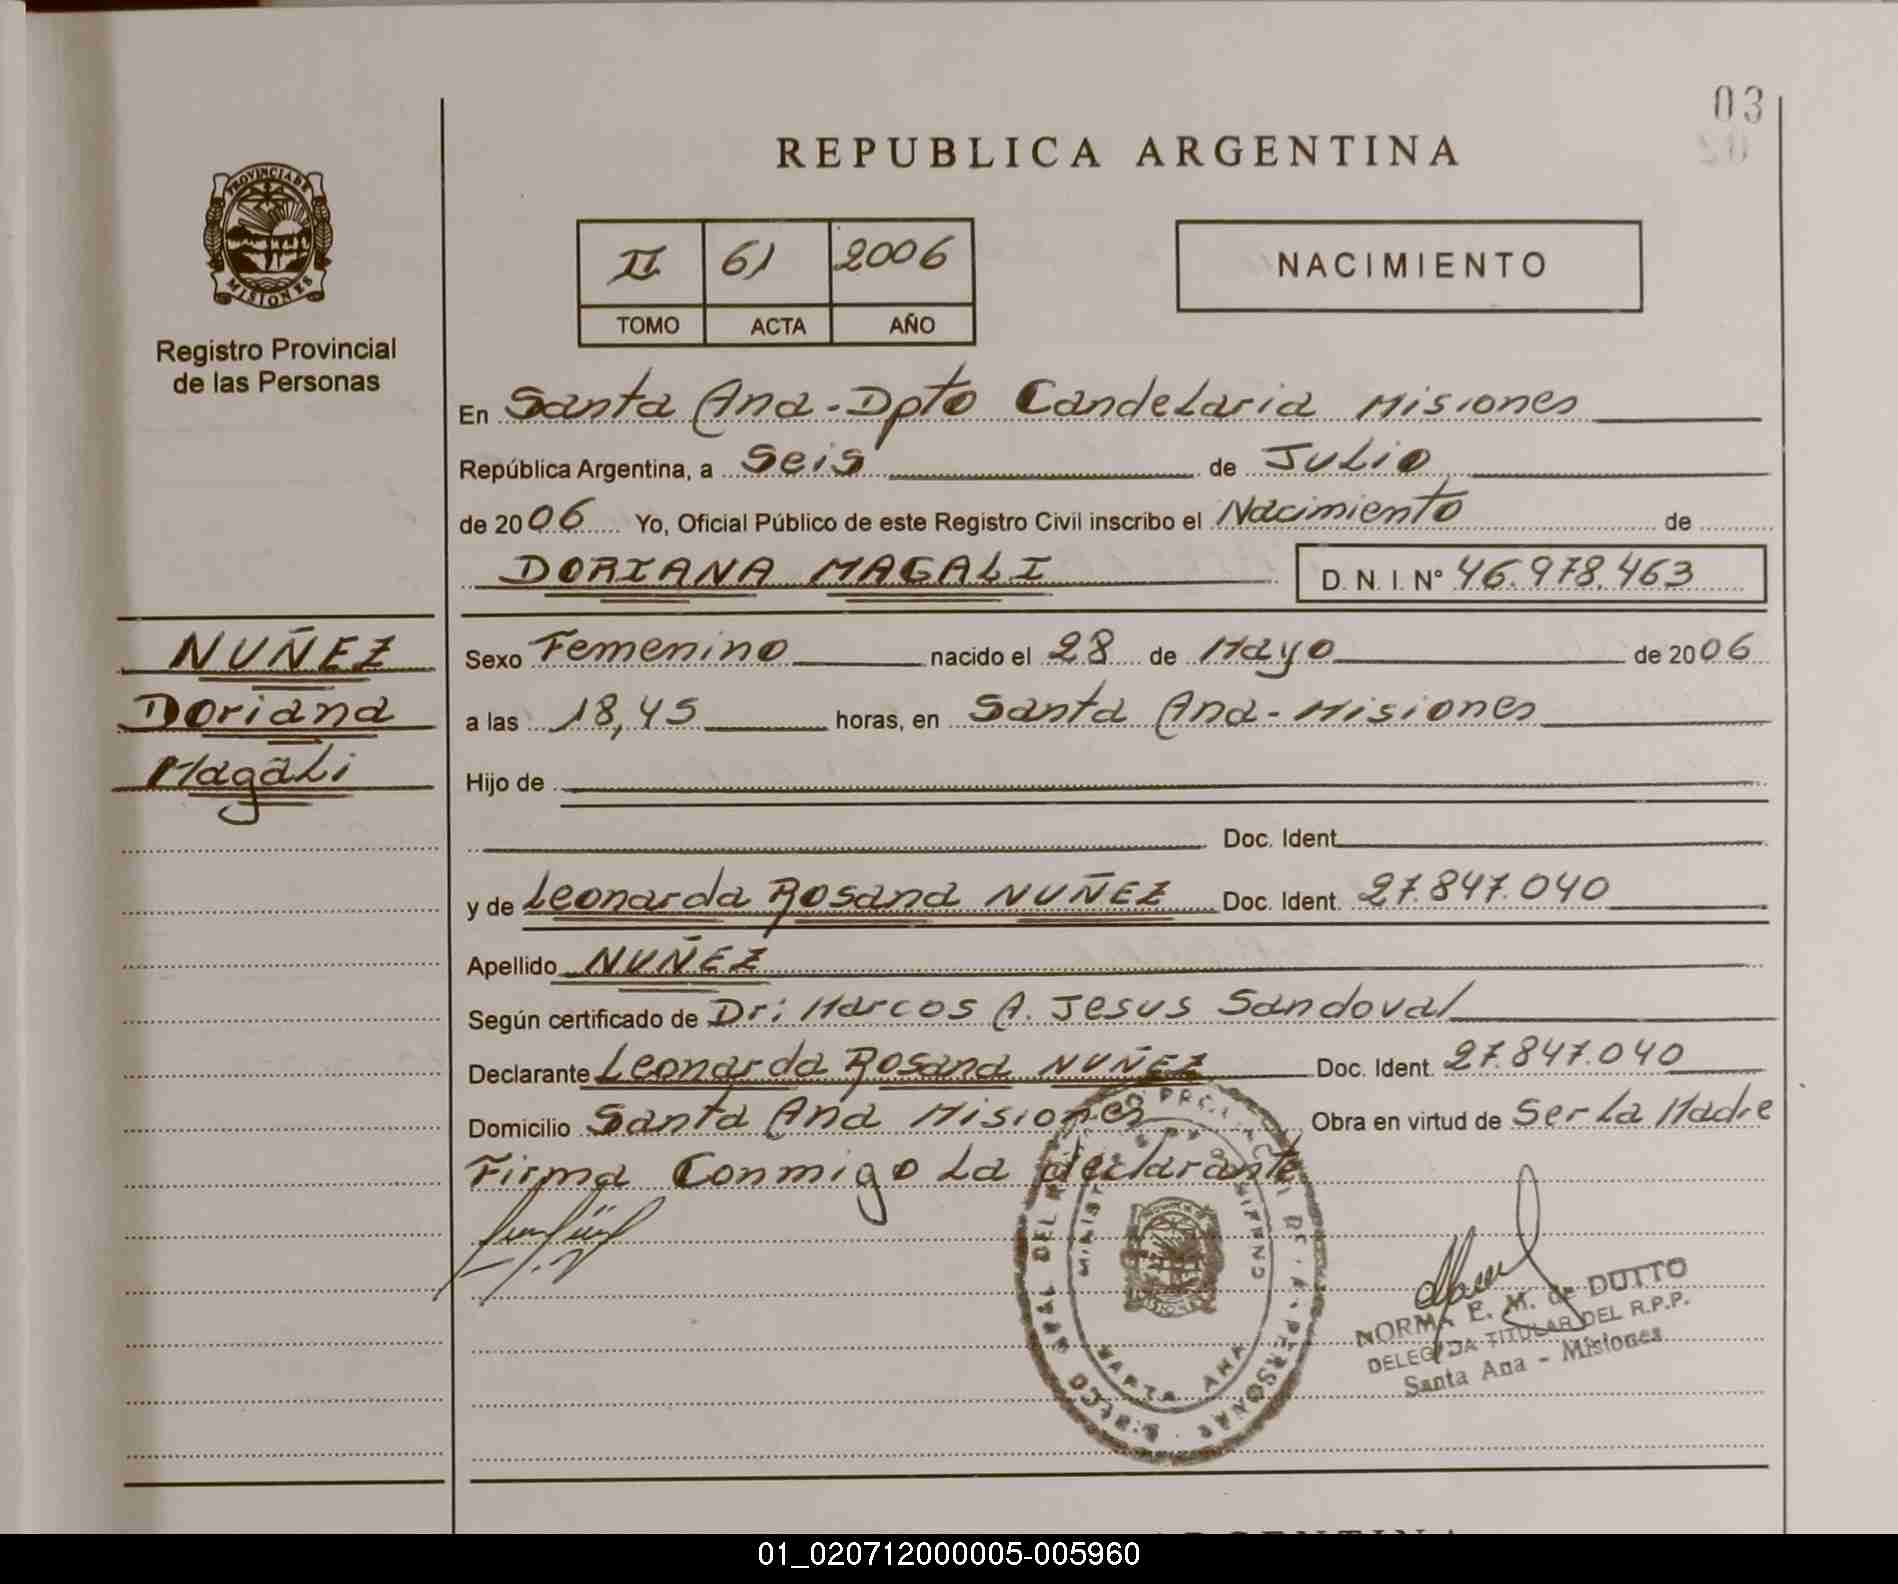 03
02
REPUBLICA ARGENTINA
PROVINCIA DE
MISIONES
Registro Provincial
de las Personas
II 61 2006
TOMO ACTA AÑO
NACIMIENTO
En Santa Ana - Dpto Candelaria Misiones
República Argentina, a Seis de Julio
de 2006 Yo, Oficial Público de este Registro Civil inscribo el Nacimiento de
DORIANA MAGALI D. N. I. N° 46.978.463
NUÑEZ
Doriana
Magali
Sexo Femenino nacido el 28 de Mayo de 2006
a las 18,45 horas, en Santa Ana - Misiones
Hijo de
Doc. Ident.
y de Leonarda Rosana NUÑEZ Doc. Ident. 27.847.040
Apellido NUÑEZ
Según certificado de Dr: Marcos A. Jesus Sandoval
Declarante Leonarda Rosana NUÑEZ Doc. Ident. 27.847.040
Domicilio Santa Ana Misiones Obra en virtud de Ser La Madre
Firma Conmigo La declarante
SANTA ANA
NORMA E. M. de DUTTO
DELEGADA TITULAR DEL R.P.P.
Santa Ana - Misiones
ARGENTINA
01_020712000005-005960